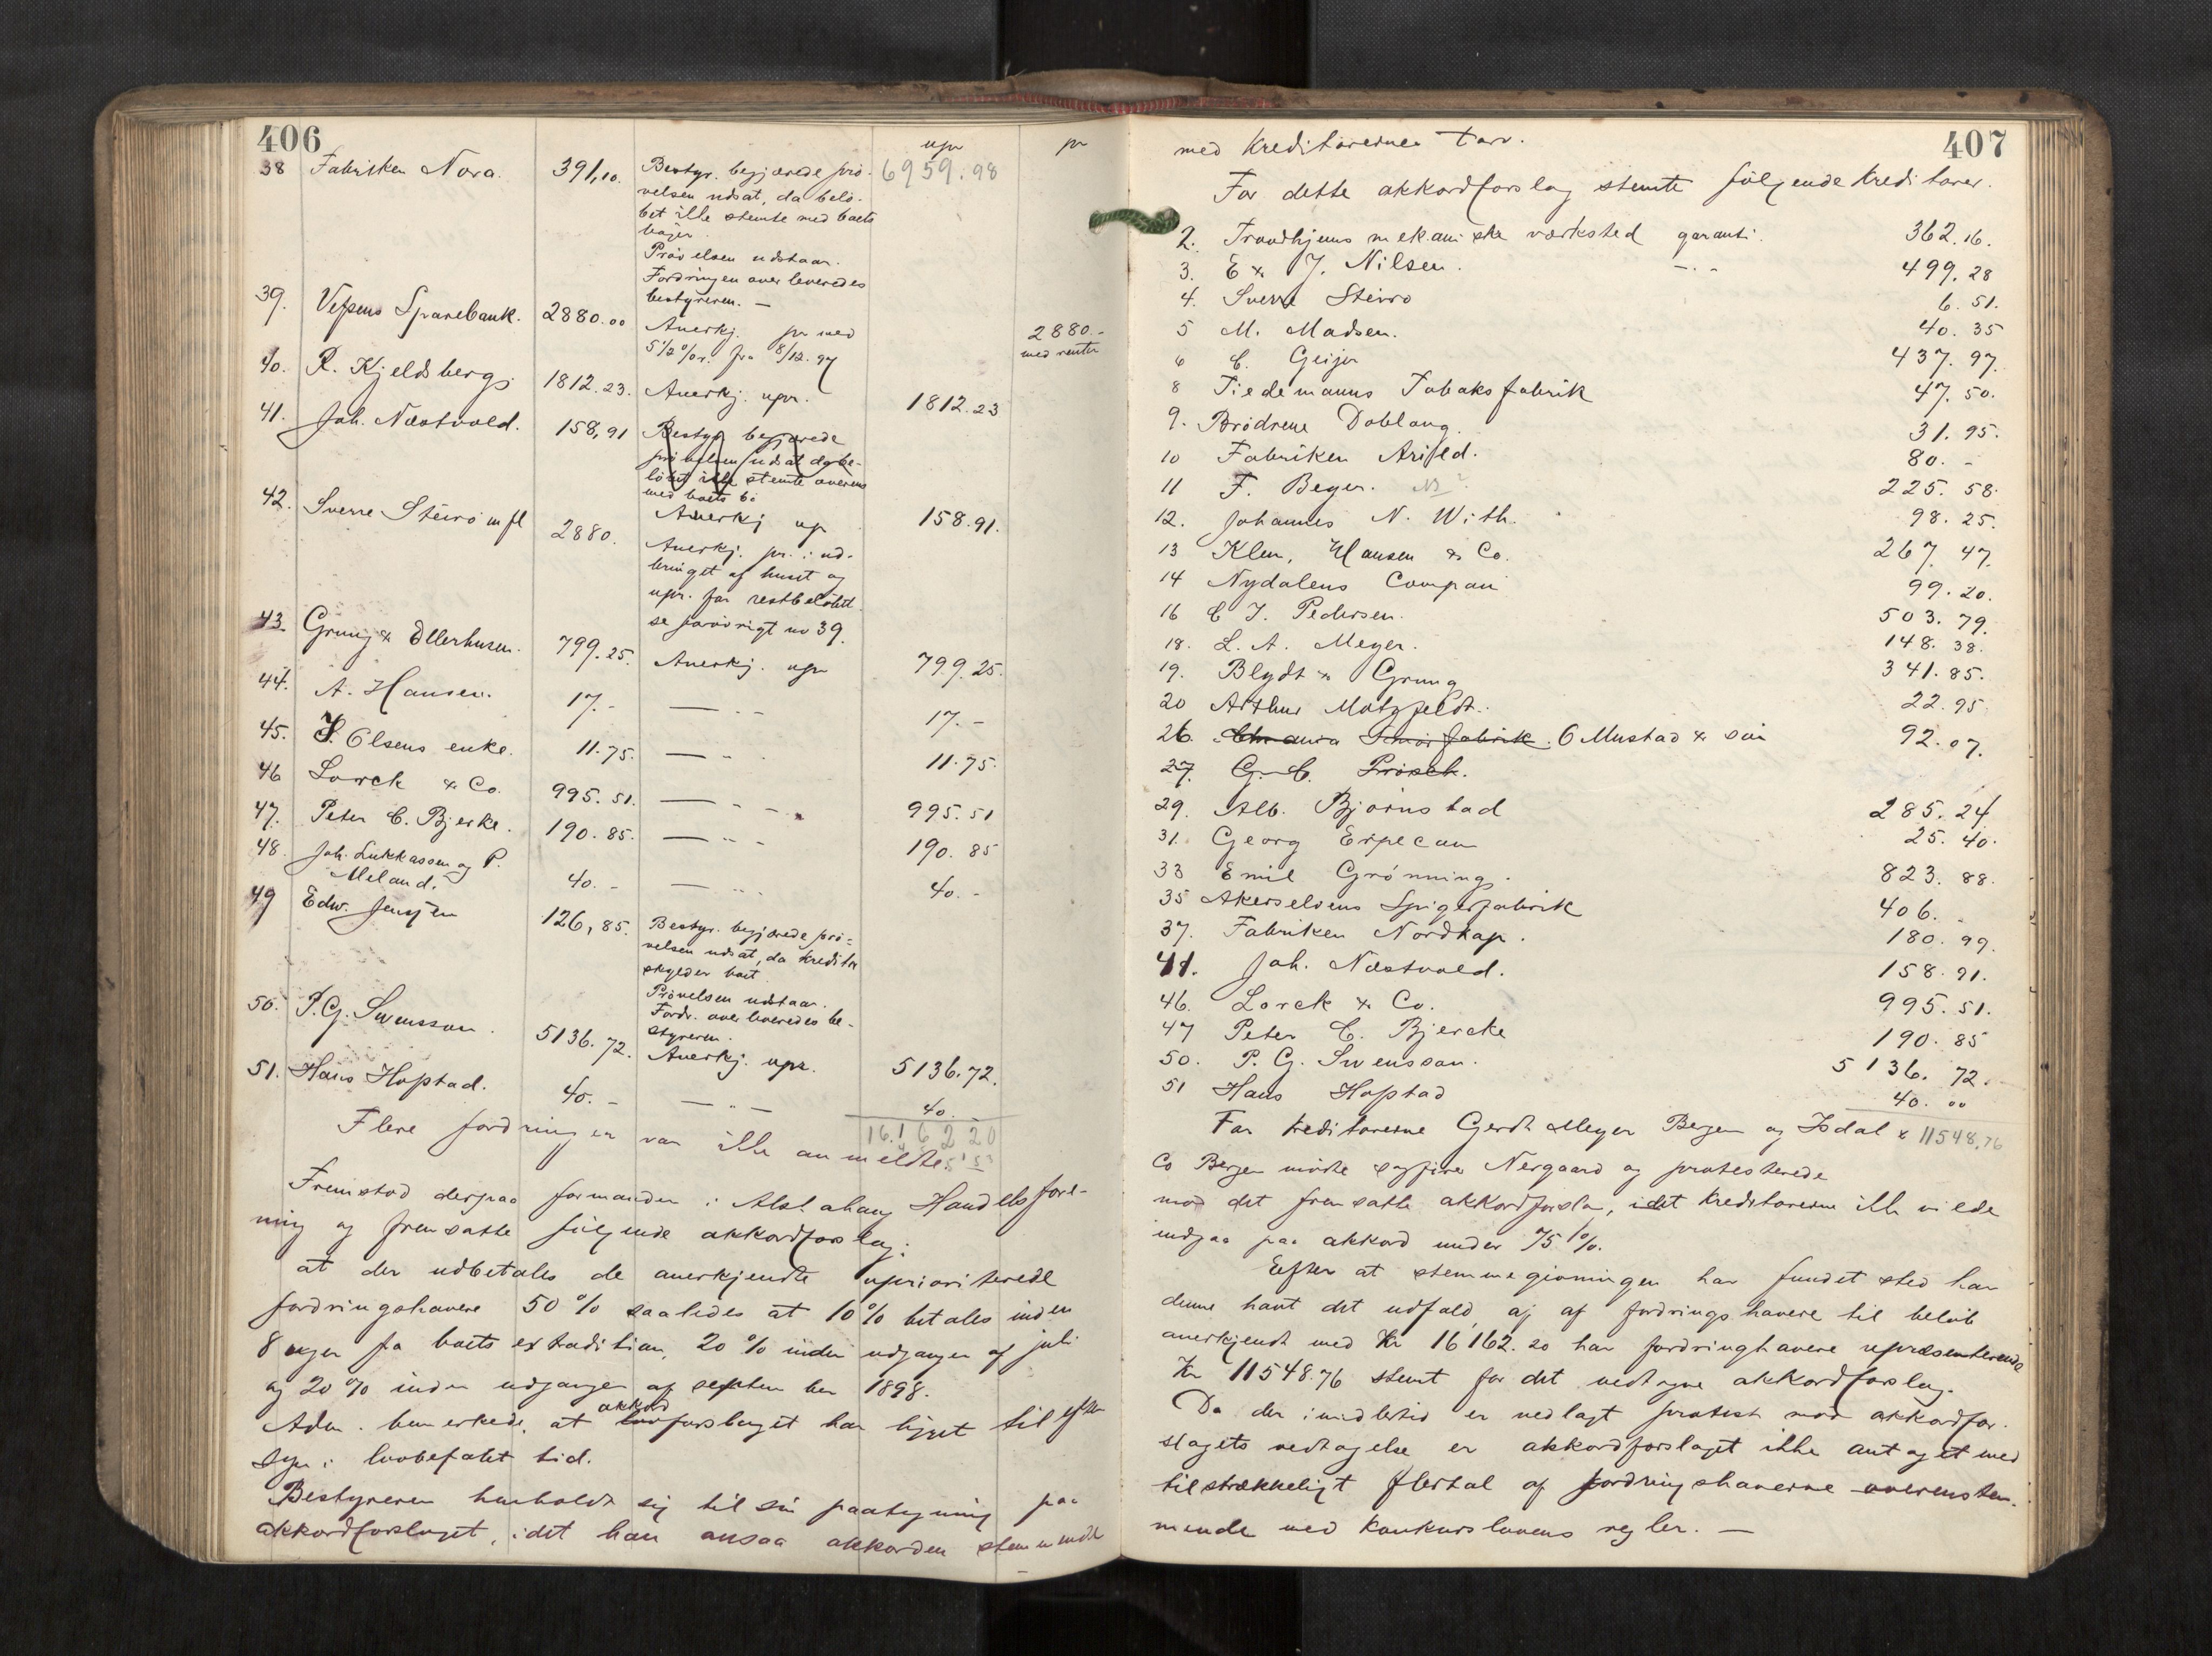 406
upr pr
38 Fabrikken Nora. 391,10. Bestyr. begjærede prø- 6959.98
velsen udsat, da belø-
bet ikke stemte med boets
bøger.
Prøvelsen udstaar.
Fordringen overleveredes
bestyreren. —
39. Vefsens Sparebank. 2880.00 Anerkj. pr med 2880.-
5 1/2 % r. fra 8/12. 97 med renter
40. R. Kjeldsberg. 1812.23. Anerkj. upr. 1812.23
41. Joh. Næstvold. 158,91 Bestyr begjærede
prøvelsen udsat da be-
løbet ikke stemte overens
med boets bø
Anerkj upr 158.91.
42. Sverre Steiro m fl 2880. Anerkj. pr. i ud-
bringet af huset og
upr. for restbeløbet
se forøvrigt no 39.
43. Grung & Ellerhusen. 799.25. Anerkj. upr 799.25.
44. A. Hansen. 17.- — - - 17.-
45. J. Olsens enke. 11.75. — - - 11.75.
46 Lorck & Co. 995.51. — - - 995.51
47. Peter C. Bjerke. 190.85. — - - 190.85
48. Joh. Lukkassen og P.
Meland. 40.- — - - 40.-
49 Edw. Jensen 126,85. Bestyr. begjærede prø-
velsen udsat, da kreditor
skylder boet
Prøvelsen udstaar.
Fordr. overleveredes be-
styreren.
50. P.G. Swensson. 5136.72. Anerkj. upr. 5136.72.
51. Hans Hopstad. 40.- — - - 40.-
16.162 20
Flere fordringer var ikke anmeldte.
Fremstod derpaa formanden i Alstahaug Handelsfore-
ning og fremsatte følgende akkordforslag:
at der udbetales de anerkjendte upriviterede
fordringshavere 50 % saaledes at 10 % betales inden
8 uger fra boets extradition, 20 % inden udgangen af juli
og 20 % inden udgangen af september 1898.
Adm. bemerkede, at akkord forslaget har ligget til efter
syn i lovbefalet tid.
Bestyreren henholdt sig til sin paategning paa
akkordforslaget, idet han ansaa akkorden stemmende
407
med kreditorernes tarv.
For dette akkordforslag stemte følgende kreditorer.
2. Trondhjems mekaniske værksted garanti. 362.16.
3. E & J. Nilsen. -.- 499.28
4. Sverre Steiro 6.51.
5 M. Madsen. 40.35
6 C. Geijer 437.97.
8 Tiedemanns Tobaksfabrik 47.50.
9. Brødrene Dobloug. 31.95.
10 Fabrikken Arild. 80.-
11 F. Beyer. 225.58.
12. Johannes N. With. 98.25.
13 Klem, Hansen & Co. 267.47.
14 Nydalens Compani 99.20.
16 C J. Pedersen. 503.79.
18. L. A. Meyer. 148.38.
19. Blydt & Grung 341.85.
20 Arthur Motzfeldt. 22.95
26. Chr ania Smørfabrik. O Mustad & søn 92.07.
27. G. C. Prøsch.
29. Alb. Bjørnstad 285.24
31. Georg Erpecum 25.40.
33 Emil Grønning. 823.88.
35 Akerselvens Spigerfabrik 406.-
37. Fabrikken Nordkap. 180.99.
41. Joh. Næstvold. 158.91.
46. Lorck & Co. 995.51.
47 Peter C. Bjercke 190.85
50. P. G. Swensson. 5136.72.
51 Hans Hopstad 40.00
For kreditorerne Gerdt Meyer Bergen og Isdal & 11548.76
Co Bergen mødte sagfører Nergaard og protesterede
mod det fremsatte akkordforsla, idet kreditorerne ikke vilde
indgaa paa akkord under 75 %.
Efter at stemmegivningen har fundet sted har
denne havt det udfald, aj af fordringshavere til beløb
anerkjendt med Kr 16162.20 har fordringhavere repræsenterende
Kr 11548.76 stemt for det vedtagne akkordforslag.
Da der imidlertid er nedlagt protest mod akkordfor-
slagets vedtagelse er akkordforslaget ikke antaget med
tilstrækkeligt flertal af fordringshaverne overensstem-
mende med konkurslovens regler. —